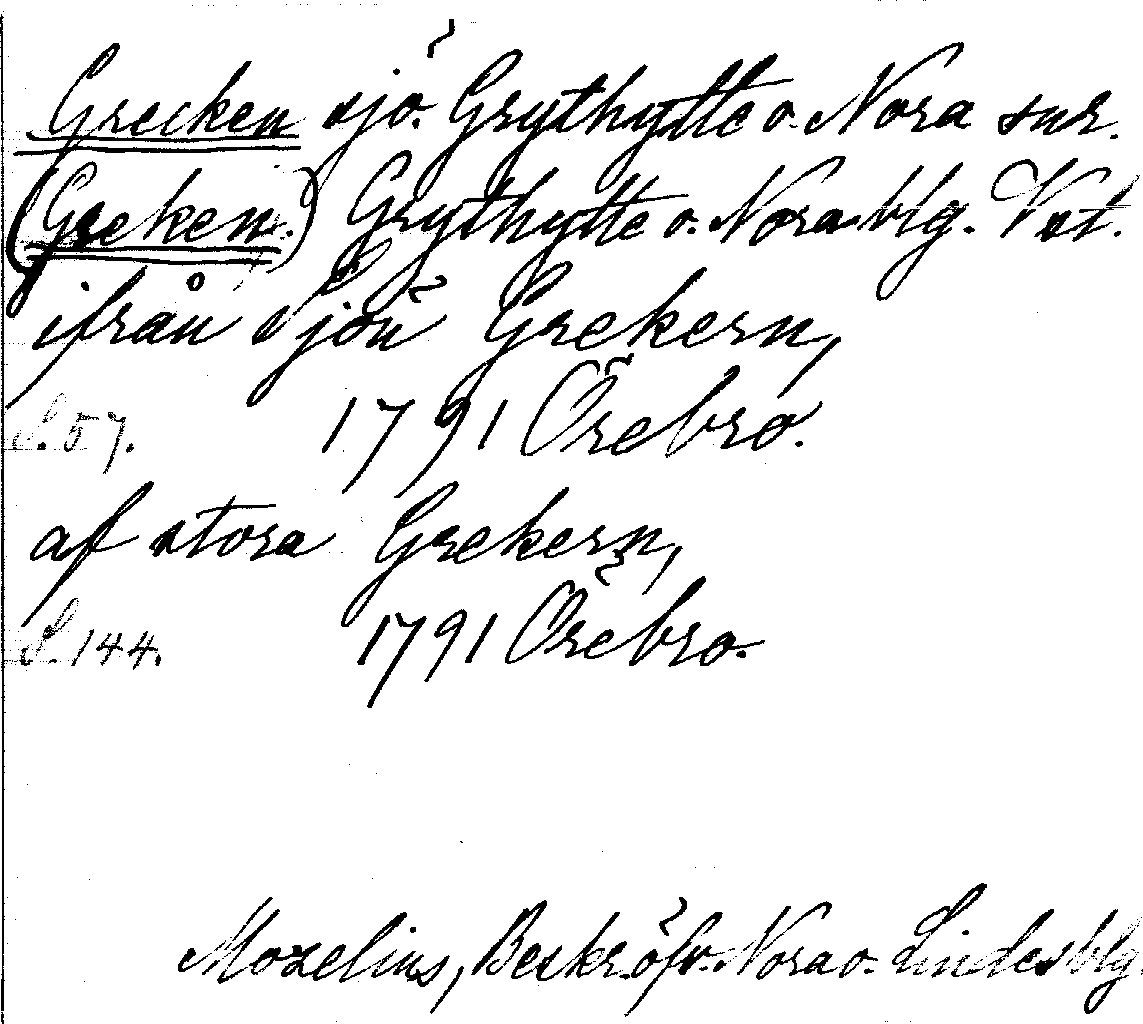 Grecken sjö. Grythytte o. Nora snr.
(Greken.) Grythytte o. Nora blg. Vst.
ifrån sjön Grekern,
S. 57. 1791 Örebro.
af stora Grekern,
S. 144. 1791 Örebro.
Mozelius, Beskr. öfv. Nora o. Lindes blg.